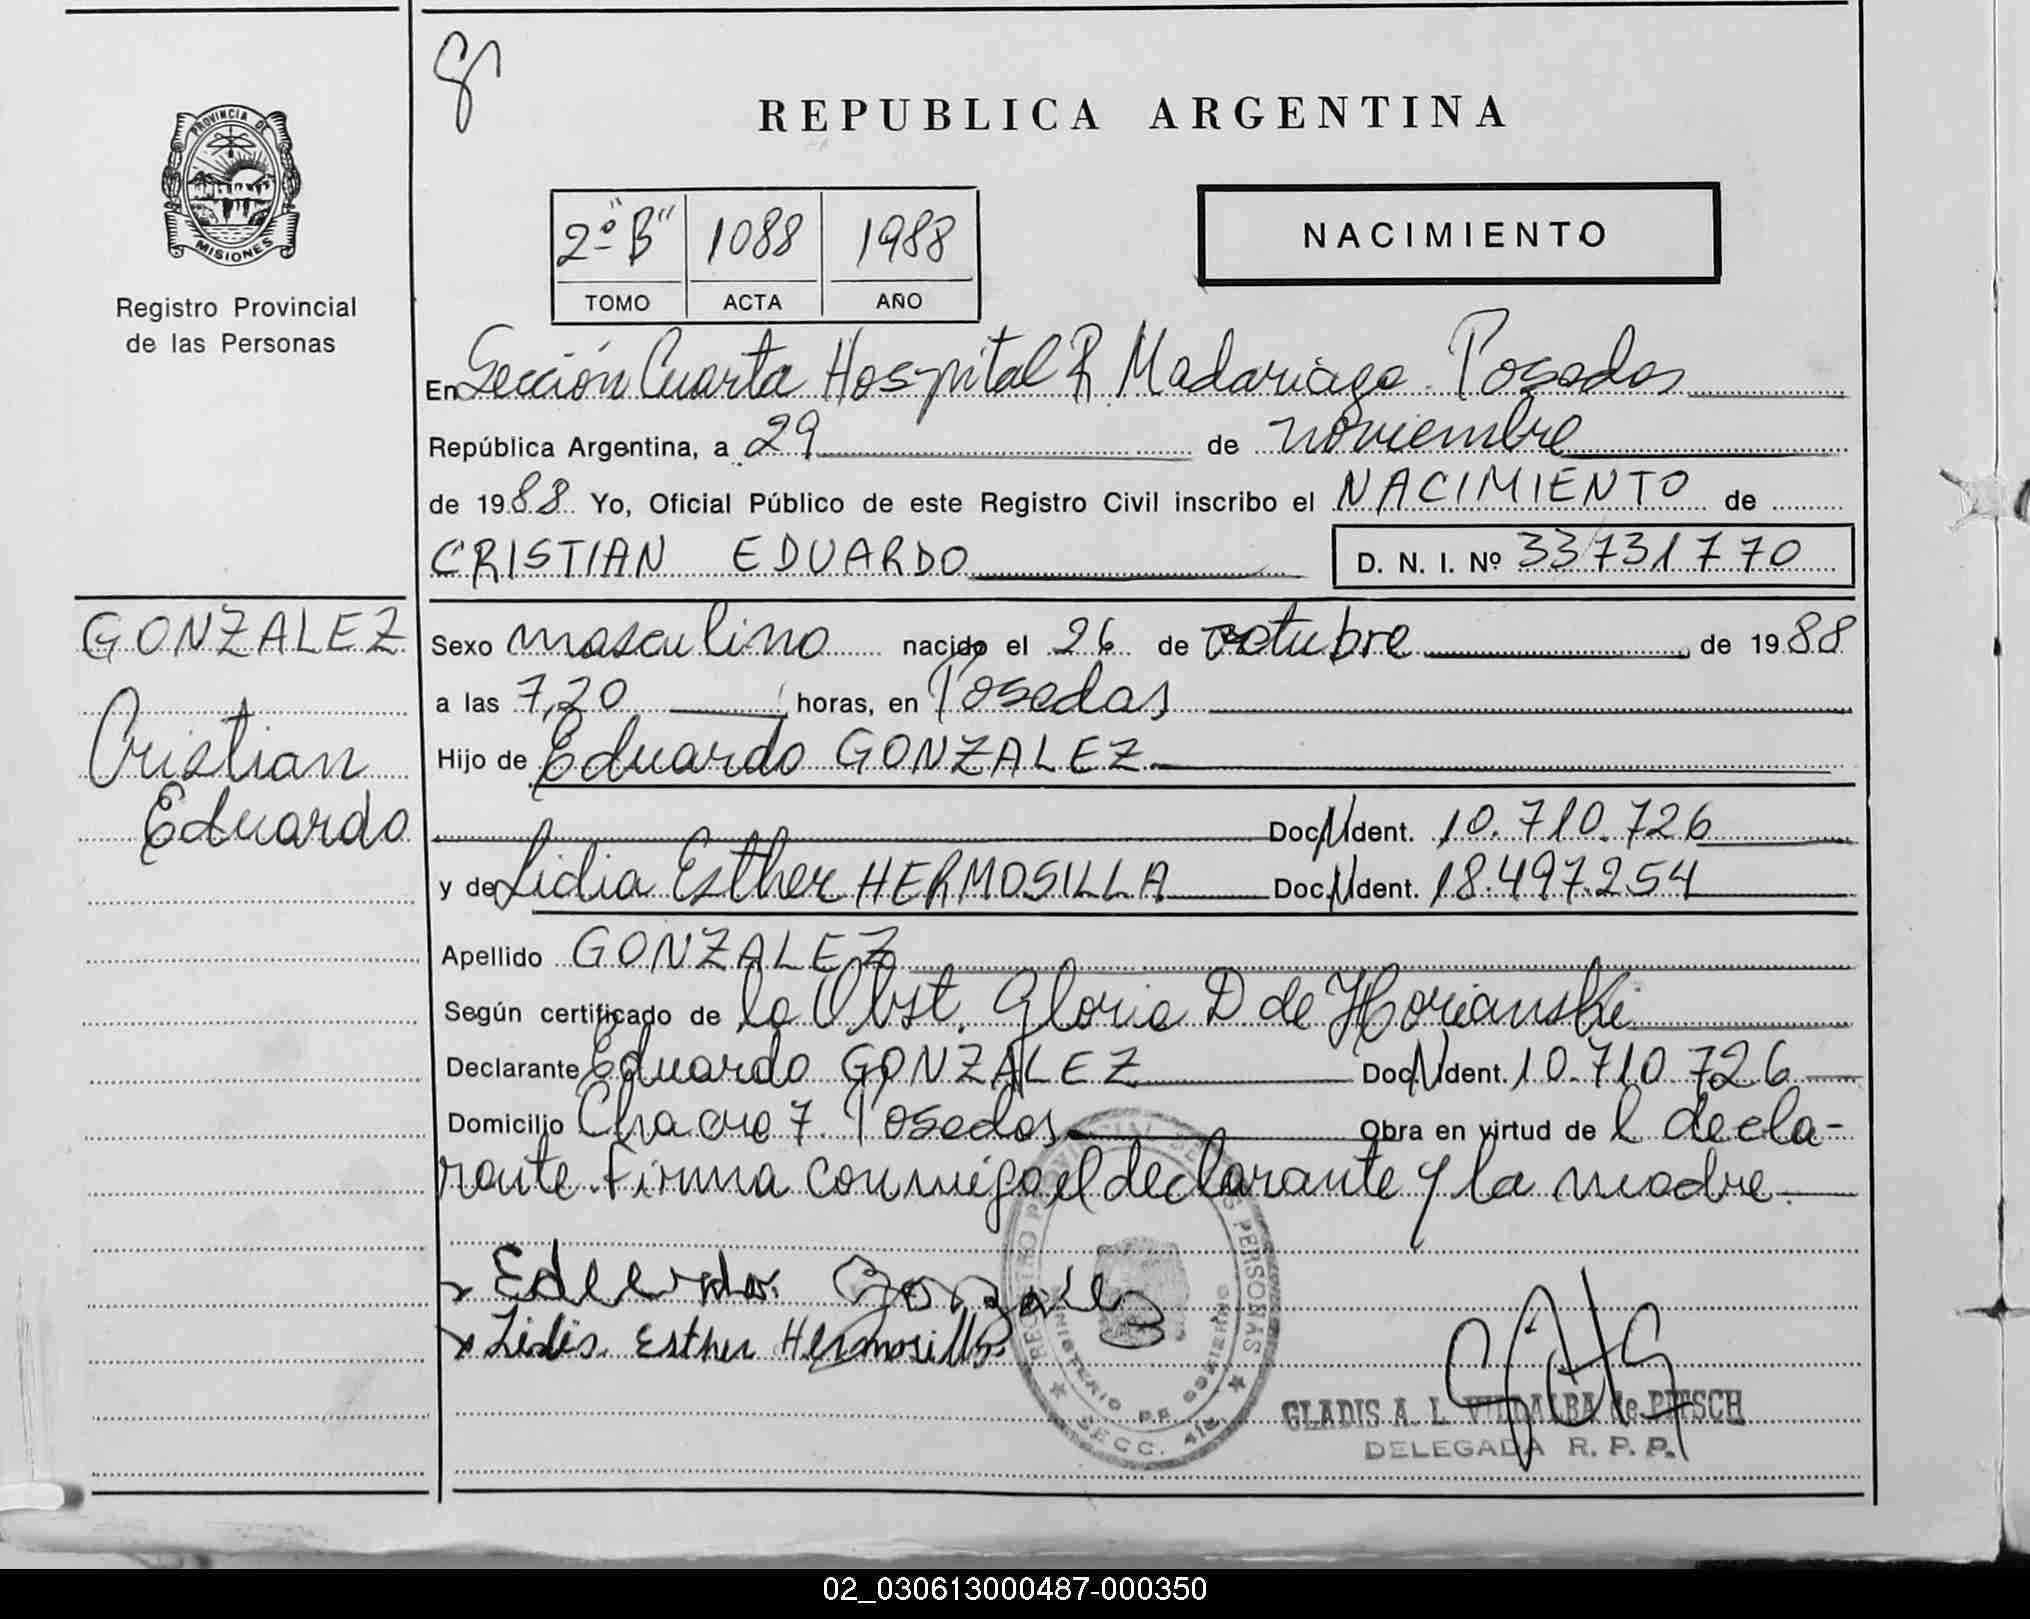 REPUBLICA ARGENTINA
PROVINCIA DE
MISIONES
Registro Provincial
de las Personas
2º "B" 1088 1988
TOMO ACTA AÑO
NACIMIENTO
En Sección Cuarta Hospital R Madariaga Posadas
República Argentina, a 29 de noviembre
de 1988 Yo, Oficial Público de este Registro Civil inscribo el NACIMIENTO de
CRISTIAN EDUARDO D. N. I. Nº 33731770
GONZALEZ
Cristian
Eduardo
Sexo masculino nacido el 26 de octubre de 1988
a las 7,20 horas, en Posadas
Hijo de Eduardo GONZALEZ
Doc. Ident. 10.710.726
y de Lidia Esther HERMOSILLA Doc. Ident. 18.497.254
Apellido GONZALEZ
Según certificado de la Obst. Gloria D de
Declarante Eduardo GONZALEZ Doc. Ident. 10.710.726
Domicilio Chacra 7. Posadas Obra en virtud de l decla-
rante. Firma conmigo el declarante y la madre
Eduardo Gonzalez
Lidia Esther Hermosilla
REGISTRO PROVINCIAL DE LAS PERSONAS
MINISTERIO DE GOBIERNO
SECC. 4ta
GLADIS A. L. VILLALBA de PETSCH
DELEGADA R. P. P.
02_030613000487-000350